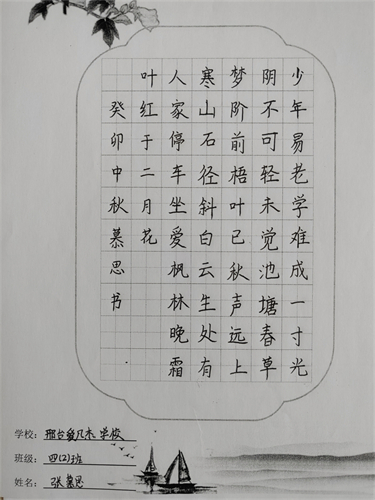 少年易老学难成一寸光
阴不可轻未觉池塘春草
梦阶前梧叶已秋声远上
寒山石径斜白云生处有
人家停车坐爱枫林晚霜
叶红于二月花
癸卯中秋慕思书
学校：邢台 学校
班级：四(2)班
姓名：张慕思